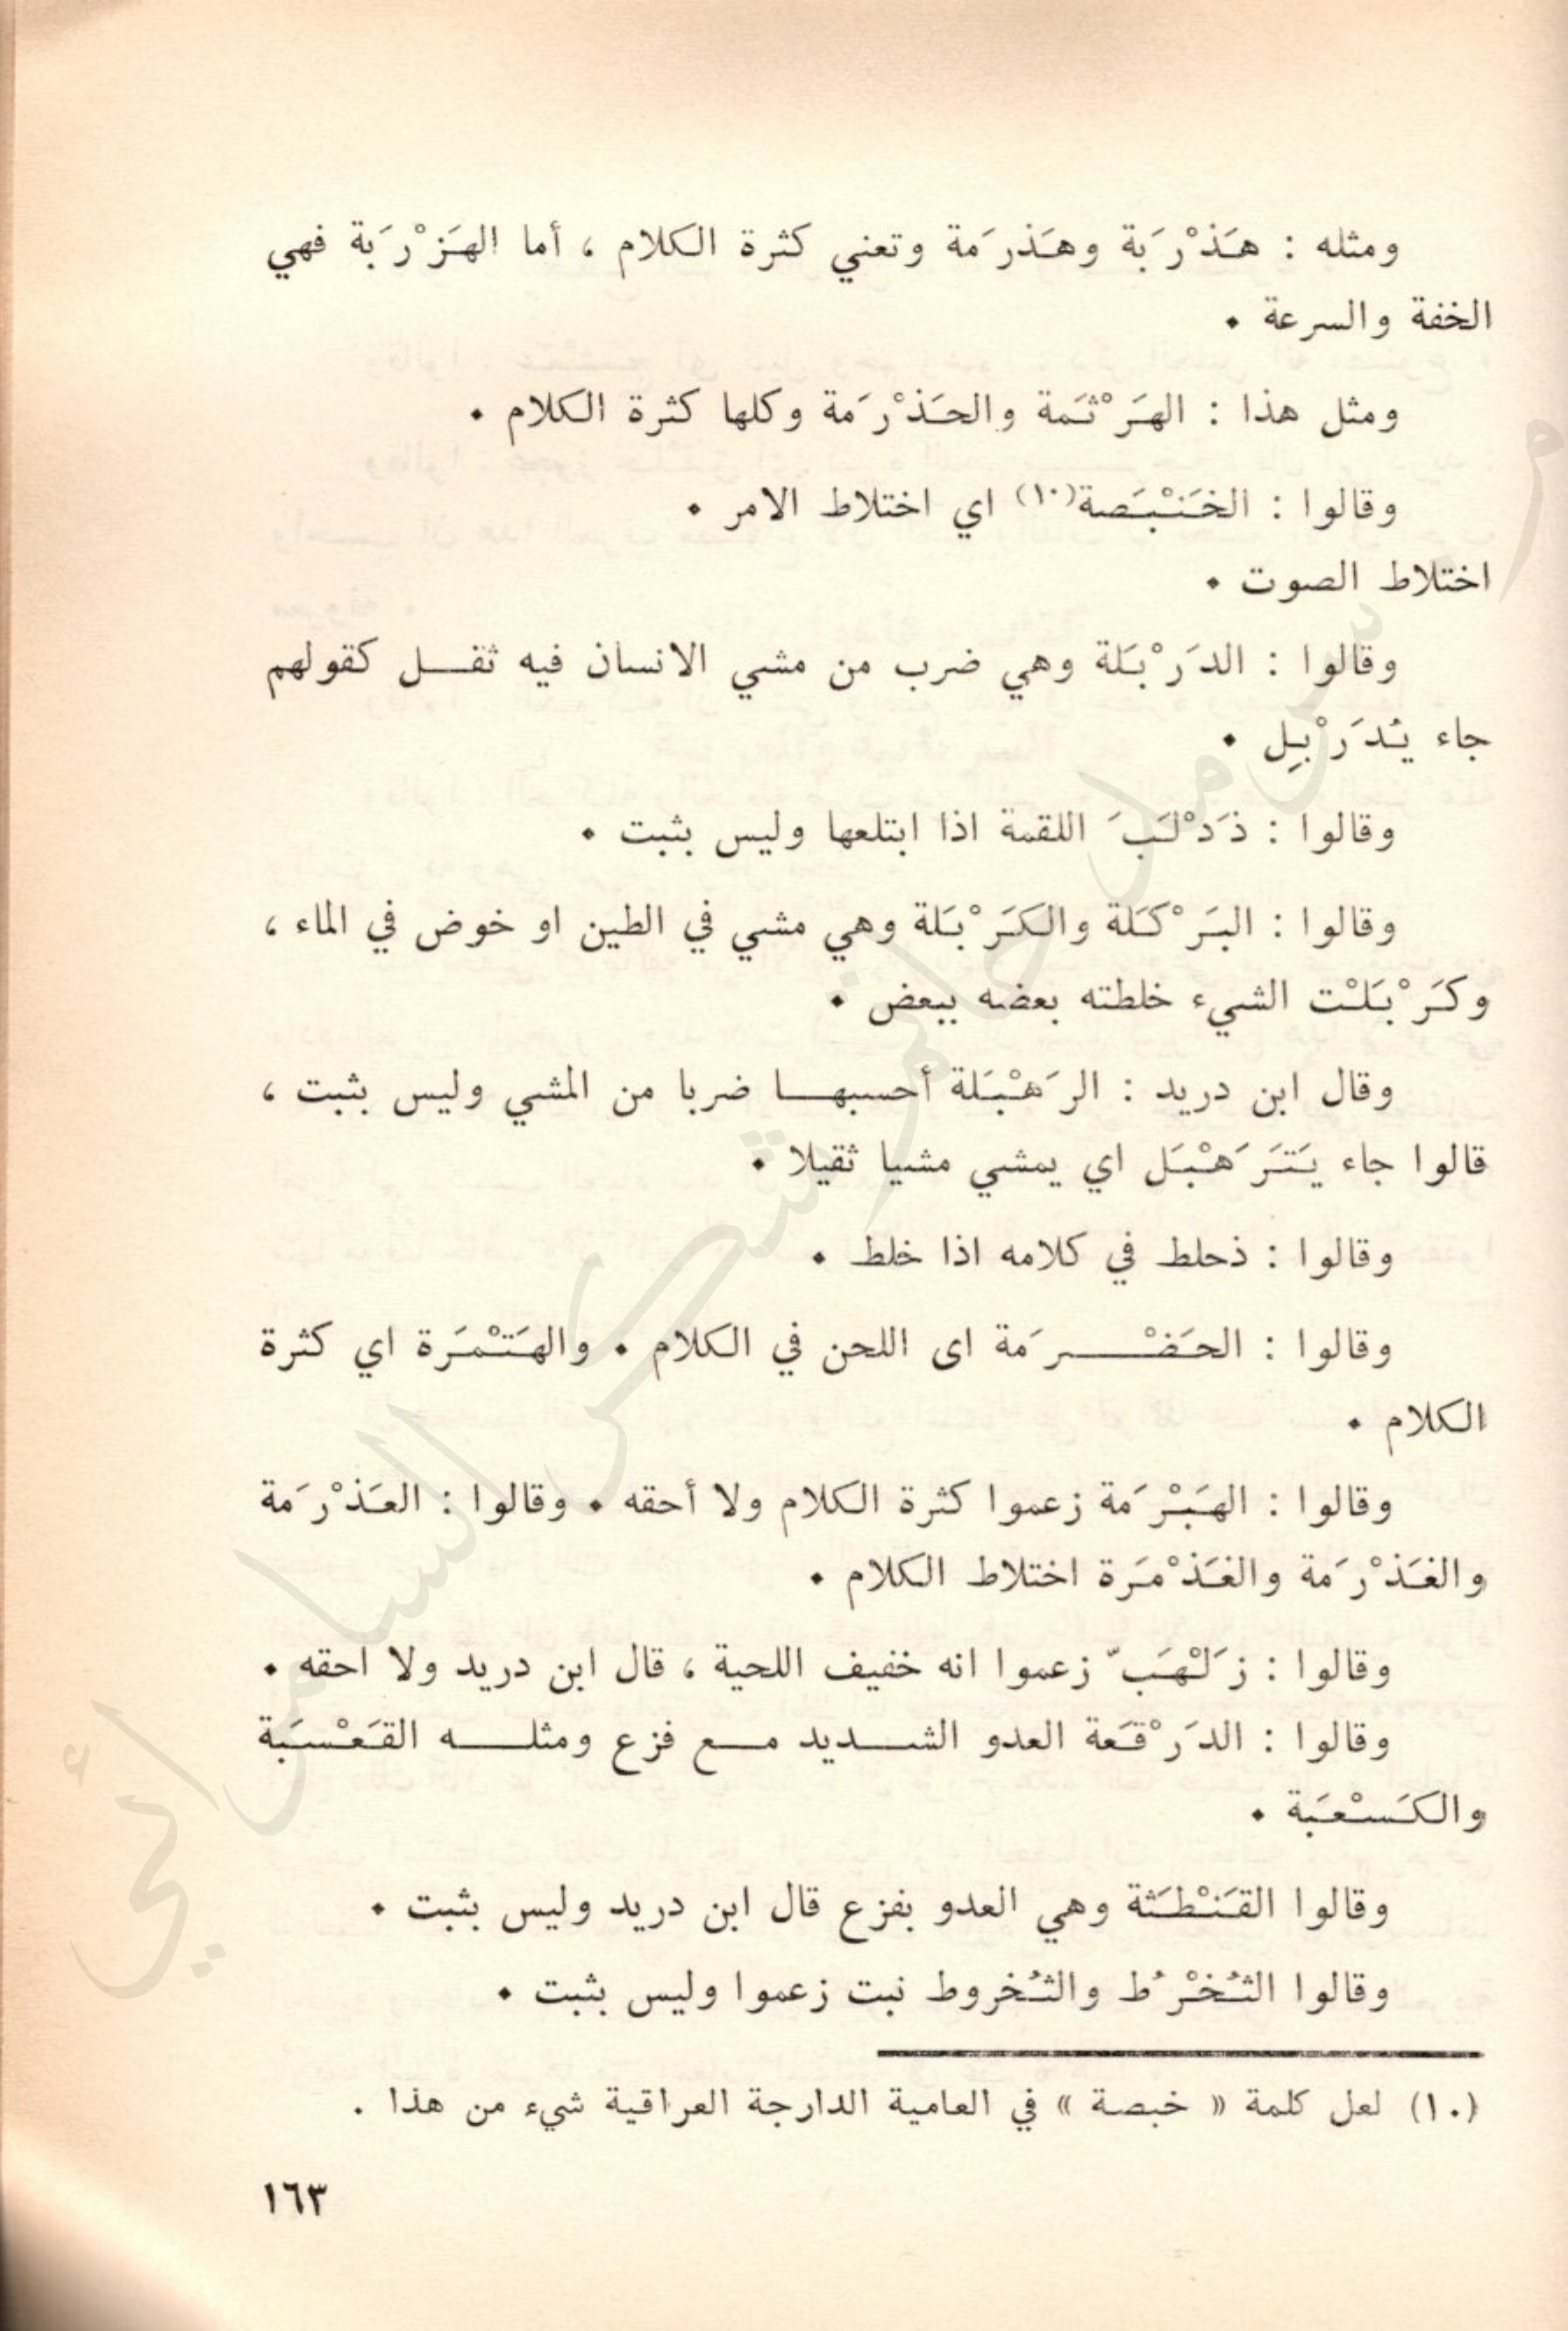 ومثله : هَذْرَبة وهَذرَمة وتعني كثرة الكلام ، أما الهَزْرَبة فهي
الخفة والسرعة .
ومثل هذا : الهَرْثَمة والحَذْرَمة وكلها كثرة الكلام .
وقالوا : الخَنْبَصة(١٠) اي اختلاط الامر .
اختلاط الصوت .
وقالوا : الدَرْبَلة وهي ضرب من مشي الانسان فيه ثقل كقولهم
جاء يُدَرْبِل .
وقالوا : ذَدْلَبَ اللقمة اذا ابتلعها وليس بثبت .
وقالوا : البَرْكَلة والكَرْبَلة وهي مشي في الطين او خوض في الماء ،
وكَرْبَلْت الشيء خلطته بعضه ببعض .
وقال ابن دريد : الرَهْبَلة أحسبها ضربا من المشي وليس بثبت ،
قالوا جاء يَتَرَهْبَل اي يمشي مشيا ثقيلا .
وقالوا : ذحلط في كلامه اذا خلط .
وقالوا : الحَضْرَمة اى اللحن في الكلام . والهَتْمَرة اي كثرة
الكلام .
وقالوا : الهَبْرَمة زعموا كثرة الكلام ولا أحقه . وقالوا : العَذْرَمة
والغَذْرَمة والغَذْمَرة اختلاط الكلام .
وقالوا : زَلْهَبّ زعموا انه خفيف اللحية ، قال ابن دريد ولا احقه .
وقالوا : الدَرْقَعة العدو الشديد مع فزع ومثله القَعْسَبة
والكَسْعَبة .
وقالوا القَنْطَثة وهي العدو بفزع قال ابن دريد وليس بثبت .
وقالوا الثُخْرُط والثُخروط نبت زعموا وليس بثبت .
(١٠) لعل كلمة « خبصة » في العامية الدارجة العراقية شيء من هذا .
١٦٣